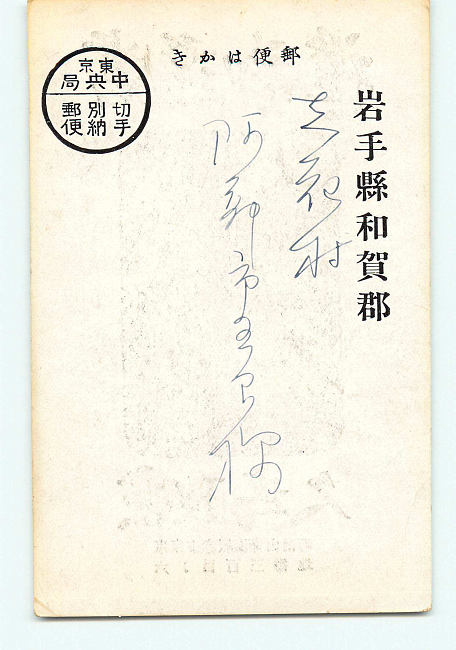 郵便はかき
東京
中央局
切手
別納
郵便
岩手縣和賀郡
立花村
阿部市五郎様